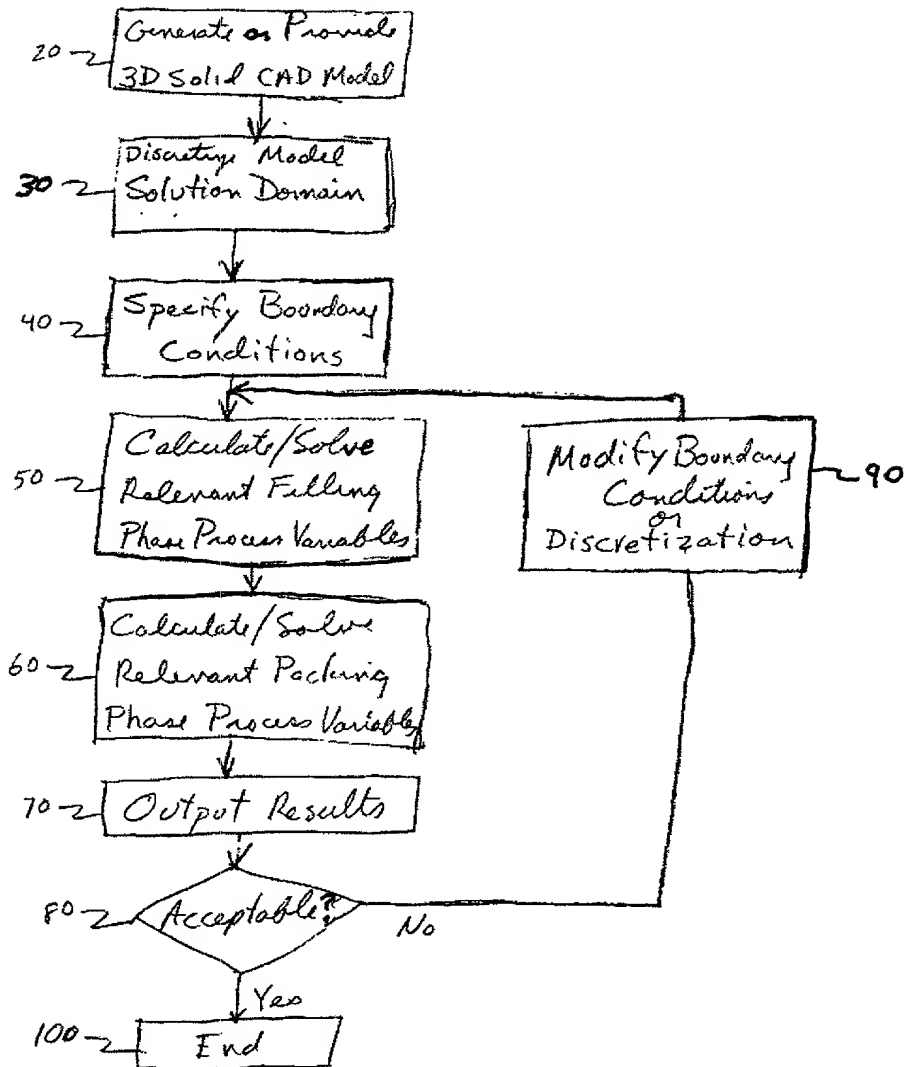 Generate or Provide
20
3D Solid CAD Model
Discretize Model
30
Solution Domain
Specify Boundary
40
Conditions
Calculate/Solve
50
Relevant Filling
Phase Process Variables
Modify Boundary
90
Conditions
or
Discretization
Calculate/Solve
60
Relevant Packing
Phase Process Variables
70
Output Results
80
Acceptable?
No
Yes
100
End